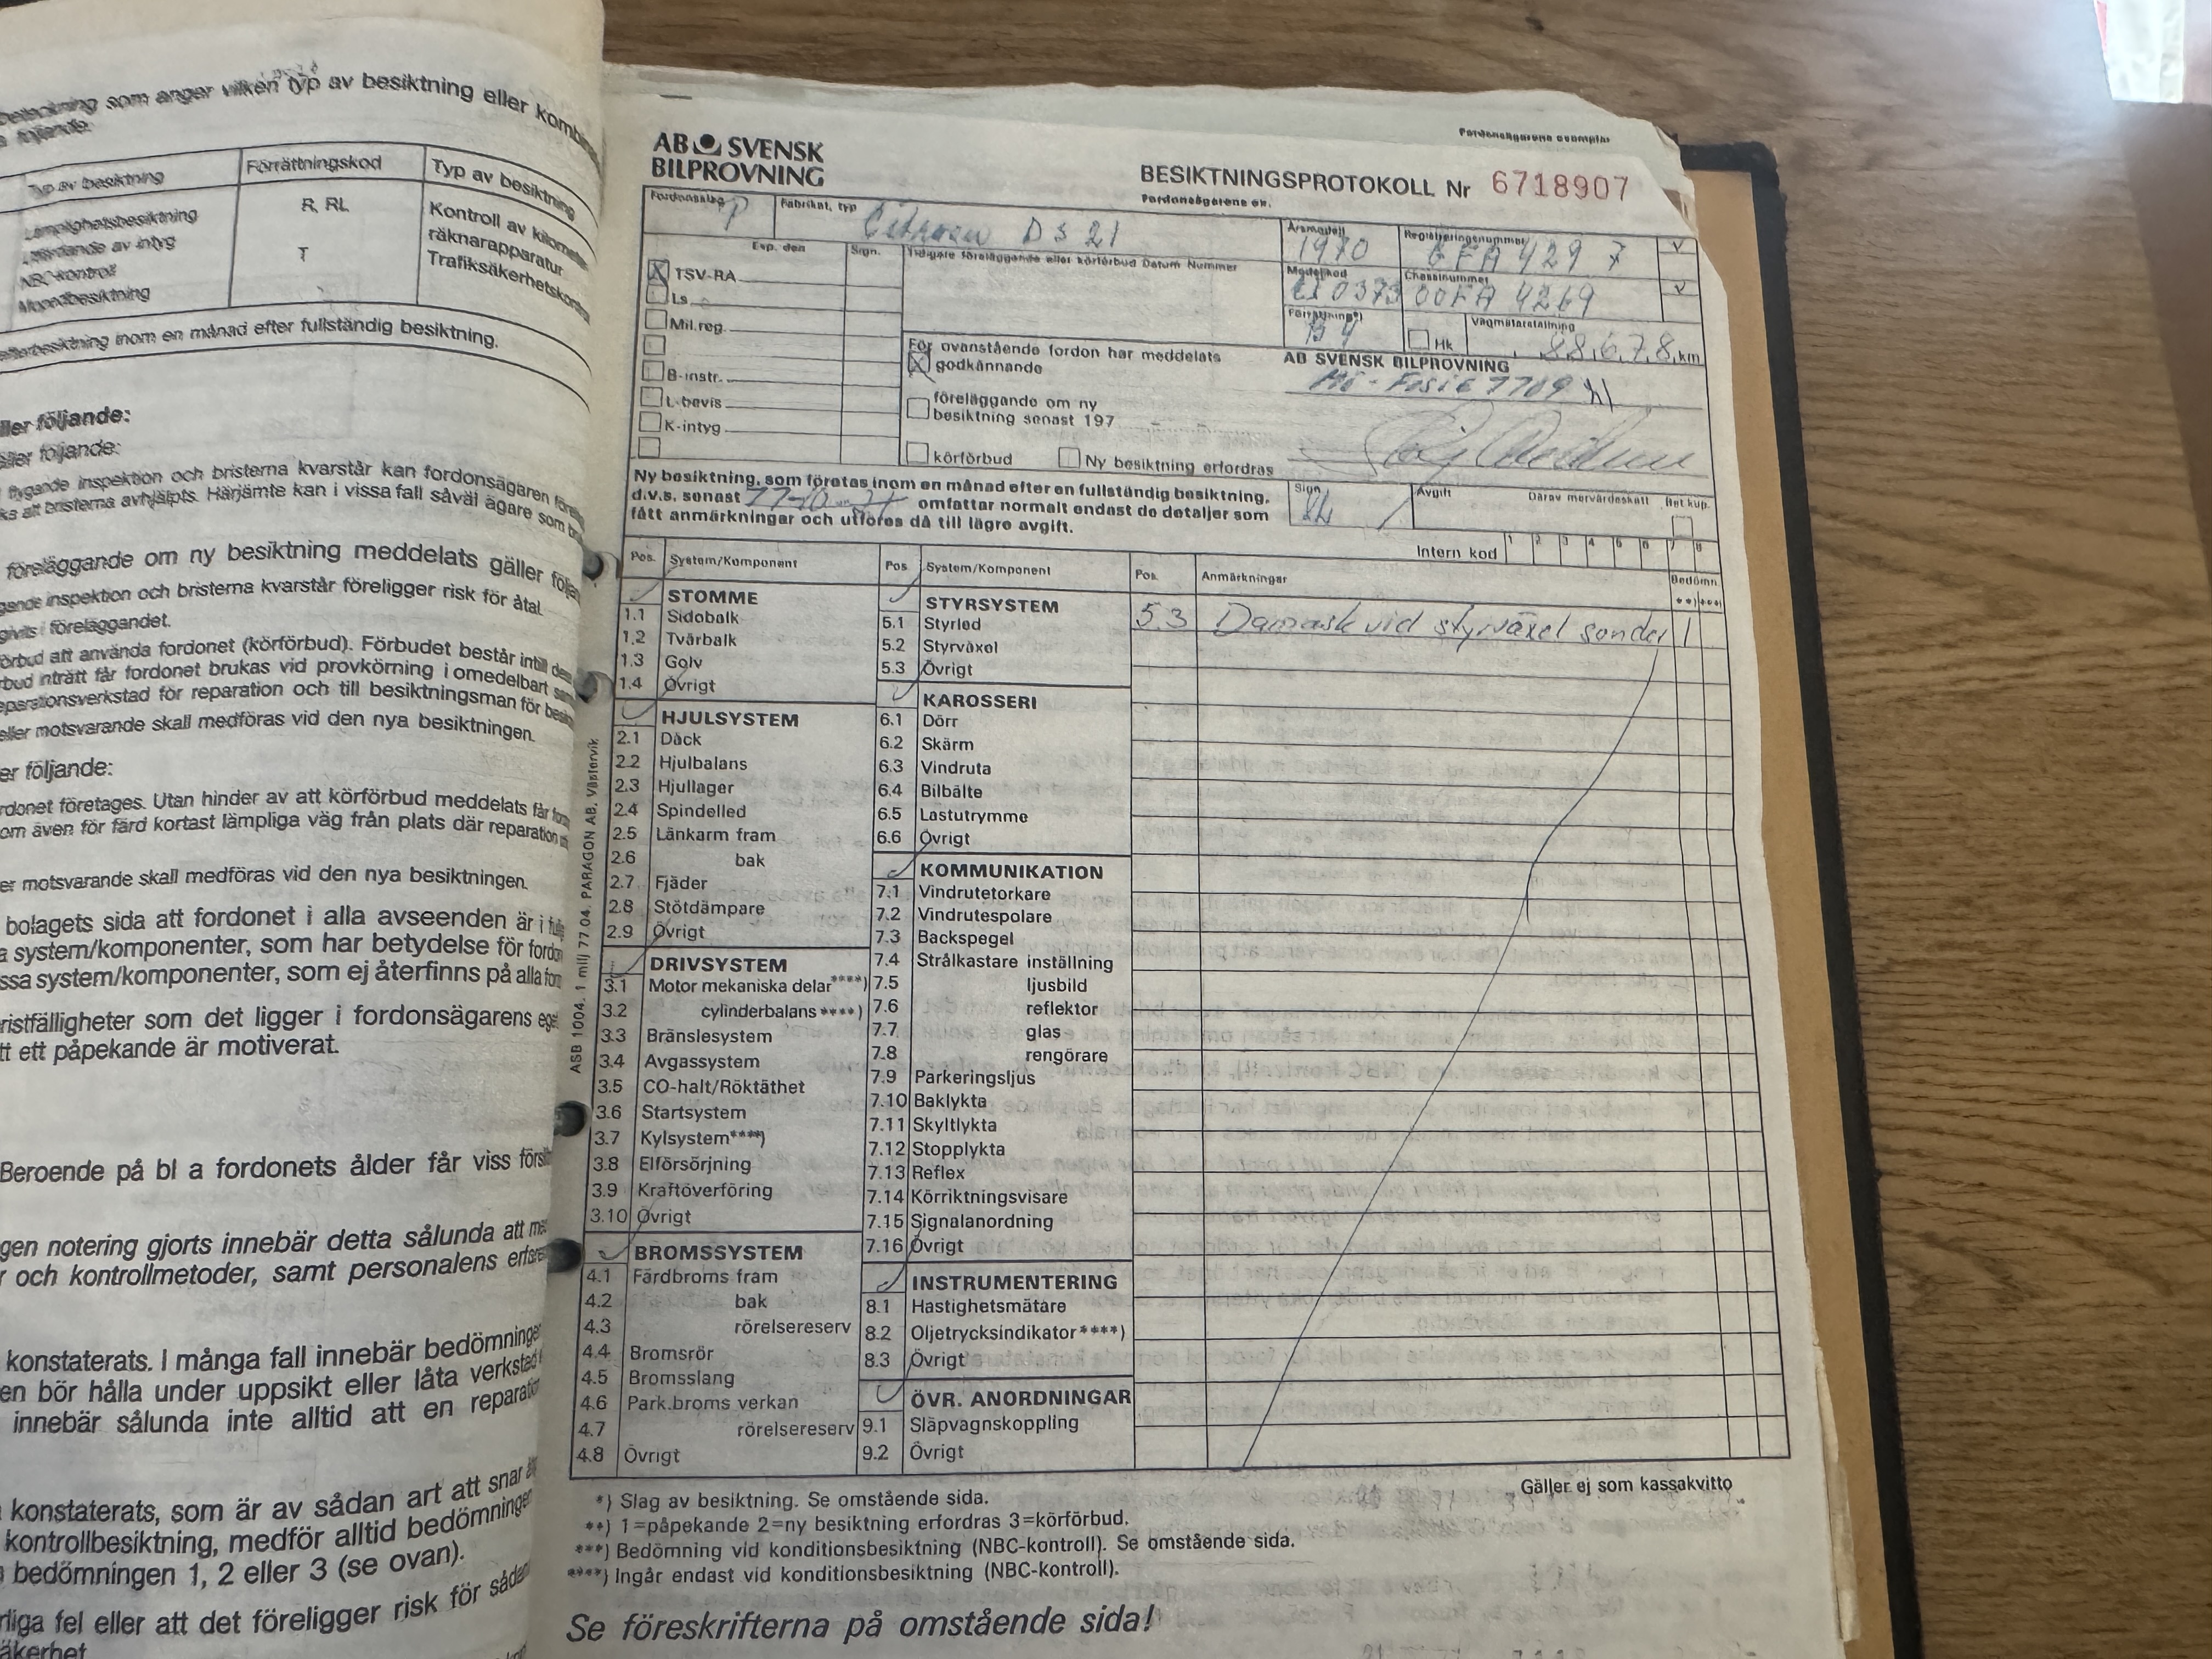 beteckning som anger vilken typ av besiktning eller
följande:
Typ av besiktning Förrättningskod Typ av besiktning
Lämplighetsbesiktning R, RL Kontroll av
Utfärdande av intyg räknarapparatur
NBC-kontroll T Trafiksäkerhets
Mopedbesiktning
efterbesiktning inom en månad efter fullständig besiktning.
eller följande:
eller följande:
flygande inspektion och bristerna kvarstår kan fordonsägaren
att bristerna avhjälpts. Härjämte kan i vissa fall såväl ägare som
föreläggande om ny besiktning meddelats gäller
inspektion och bristerna kvarstår föreligger risk för åtal
givits i föreläggandet.
att använda fordonet (körförbud). Förbudet består intill
inträtt får fordonet brukas vid provkörning i omedelbart
reparationsverkstad för reparation och till besiktningsman för
eller motsvarande skall medföras vid den nya besiktningen.
er följande:
fordonet företages. Utan hinder av att körförbud meddelats får
om även för färd kortast lämpliga väg från plats där reparation
er motsvarande skall medföras vid den nya besiktningen.
bolagets sida att fordonet i alla avseenden är i
system/komponenter, som har betydelse för
system/komponenter, som ej återfinns på alla
bristfälligheter som det ligger i fordonsägarens
tt ett påpekande är motiverat.
Beroende på bl a fordonets ålder får viss
gen notering gjorts innebär detta sålunda att
r och kontrollmetoder, samt personalens
konstaterats. I många fall innebär
en bör hålla under uppsikt eller låta
innebär sålunda inte alltid att en
konstaterats, som är av sådan art att snar
kontrollbesiktning, medför alltid
bedömningen 1, 2 eller 3 (se ovan).
rliga fel eller att det föreligger risk för
Fordonsägarens exemplar
AB SVENSK
BILPROVNING
BESIKTNINGSPROTOKOLL Nr 6718907
Fordonsägarens ex.
Fordonsslag P Fabrikat, typ Citroen DS 21 Årsmodell 1970 Registreringsnummer
Exp. den Sign. Tidigare föreläggande eller körförbud Datum Nummer Modellkod Chassinummer 00FA 4269
TSV-RA
Ls
Mil.reg.
B-instr.
L-bevis
K-intyg
Förrättning*) B4 Hk Vägmätarställning 88678 km
För ovanstående fordon har meddelats
godkännande
föreläggande om ny
besiktning senast 197
körförbud Ny besiktning erfordras
AB SVENSK BILPROVNING
7709
Ny besiktning, som företas inom en månad efter en fullständig besiktning,
d.v.s. senast omfattar normalt endast de detaljer som
fått anmärkningar och utföres då till lägre avgift.
Sign Avgift Därav mervärdeskatt Bet kup.
Intern kod 1 2 3 4 5 6 7 8
Pos. System/Komponent Pos. System/Komponent Pos. Anmärkningar Bedömn.
**) ***)
5.3 Damask vid styrväxel sönder 1
STOMME
1.1 Sidobalk
1.2 Tvärbalk
1.3 Golv
1.4 Övrigt
HJULSYSTEM
2.1 Däck
2.2 Hjulbalans
2.3 Hjullager
2.4 Spindelled
2.5 Länkarm fram
2.6 bak
2.7 Fjäder
2.8 Stötdämpare
2.9 Övrigt
DRIVSYSTEM
3.1 Motor mekaniska delar****)
3.2 cylinderbalans****)
3.3 Bränslesystem
3.4 Avgassystem
3.5 CO-halt/Röktäthet
3.6 Startsystem
3.7 Kylsystem****)
3.8 Elförsörjning
3.9 Kraftöverföring
3.10 Övrigt
BROMSSYSTEM
4.1 Färdbroms fram
4.2 bak
4.3 rörelsereserv
4.4 Bromsrör
4.5 Bromsslang
4.6 Park.broms verkan
4.7 rörelsereserv
4.8 Övrigt
STYRSYSTEM
5.1 Styrled
5.2 Styrväxel
5.3 Övrigt
KAROSSERI
6.1 Dörr
6.2 Skärm
6.3 Vindruta
6.4 Bilbälte
6.5 Lastutrymme
6.6 Övrigt
KOMMUNIKATION
7.1 Vindrutetorkare
7.2 Vindrutespolare
7.3 Backspegel
7.4 Strålkastare inställning
7.5 ljusbild
7.6 reflektor
7.7 glas
7.8 rengörare
7.9 Parkeringsljus
7.10 Baklykta
7.11 Skyltlykta
7.12 Stopplykta
7.13 Reflex
7.14 Körriktningsvisare
7.15 Signalanordning
7.16 Övrigt
INSTRUMENTERING
8.1 Hastighetsmätare
8.2 Oljetrycksindikator****)
8.3 Övrigt
ÖVR. ANORDNINGAR
9.1 Släpvagnskoppling
9.2 Övrigt
ASB 1004. 1 milj 77.04. PARAGON AB, Västervik
Gäller ej som kassakvitto
*) Slag av besiktning. Se omstående sida.
**) 1=påpekande 2=ny besiktning erfordras 3=körförbud.
***) Bedömning vid konditionsbesiktning (NBC-kontroll). Se omstående sida.
****) Ingår endast vid konditionsbesiktning (NBC-kontroll).
Se föreskrifterna på omstående sida!